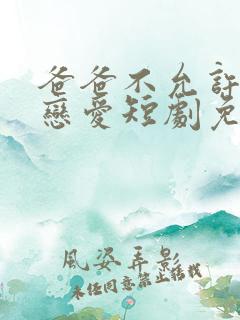 爸爸不允許
戀愛短劇免
風姿弄影
未经同意禁止转载